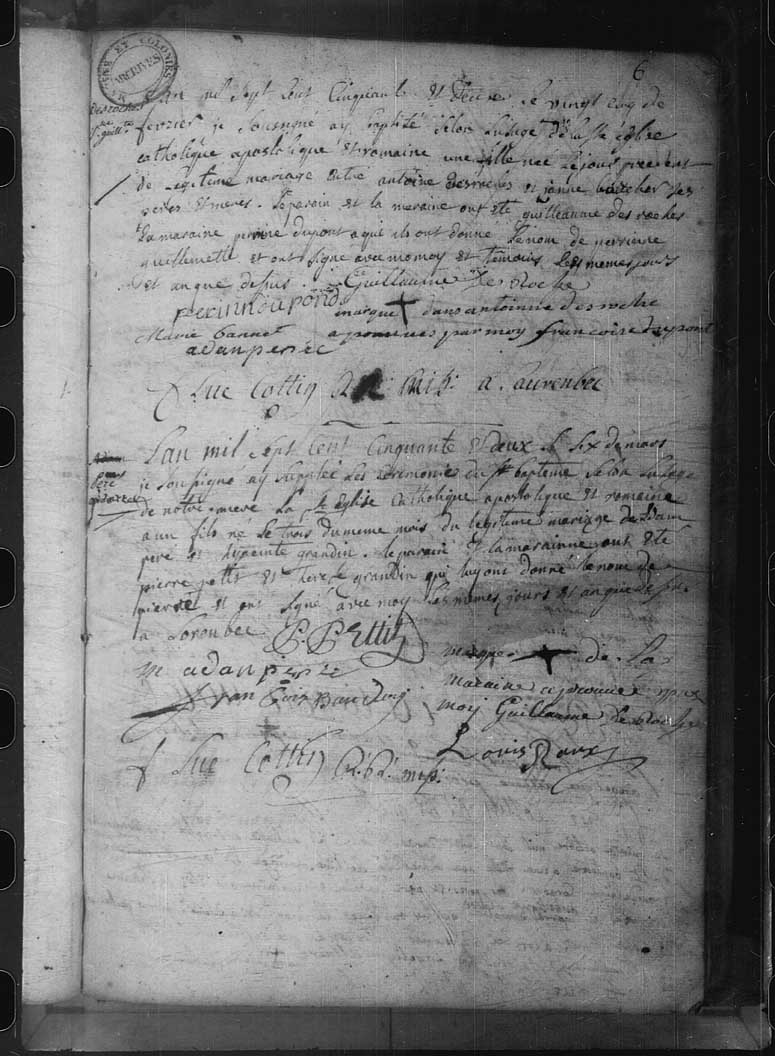 6
MARINE ET COLONIES
ARCHIVES
L'an mil Sept Cent Cinquante et deux le vingt cinq de
fevrier je Soussigné ay baptisé Selon Lusage de la Ste église
catholique apostolique et romaine une fille née le jour precedent
de Legitime mariage entre antoine desroches et janne boucher ses
peres et meres. Leparain et la maraine ont ete guilleaume des roches
La maraine perine dupont a qui ils ont donné Lenom de perinne
guillemette et ont signé avec moy et temoins Les memes jours
et an que desus. Guillaume de Roche
perinn dupond
marque + dans antoinne desroche
Marie
aprouvees par moy francoise dupont
adan perée
f Luc Cottin R. mis. a. Laurenbec
L'an mil Sept Cent Cinquante et deux le Six de mars
je Soussigné ay Suppleé Les Ceremonie du St bapteme Selon Lusage
de notre mere La Ste Eglise Catholique apostolique et romaine
a un fils né le trois du meme mois du legitime mariage de adam
peré et grandin. le parain et la marainne ont eté
pierre petit et Terese grandin qui luy ont donné le nom de
pierre et ont signé avec moy Les memes jours et an que desus.
a Lorenbec P. PEttit
adan perée
marque + de La
maraine aprouvée par
moy Guillaume de Roche
Louis Roux
f Luc Cottin R. P. mis.